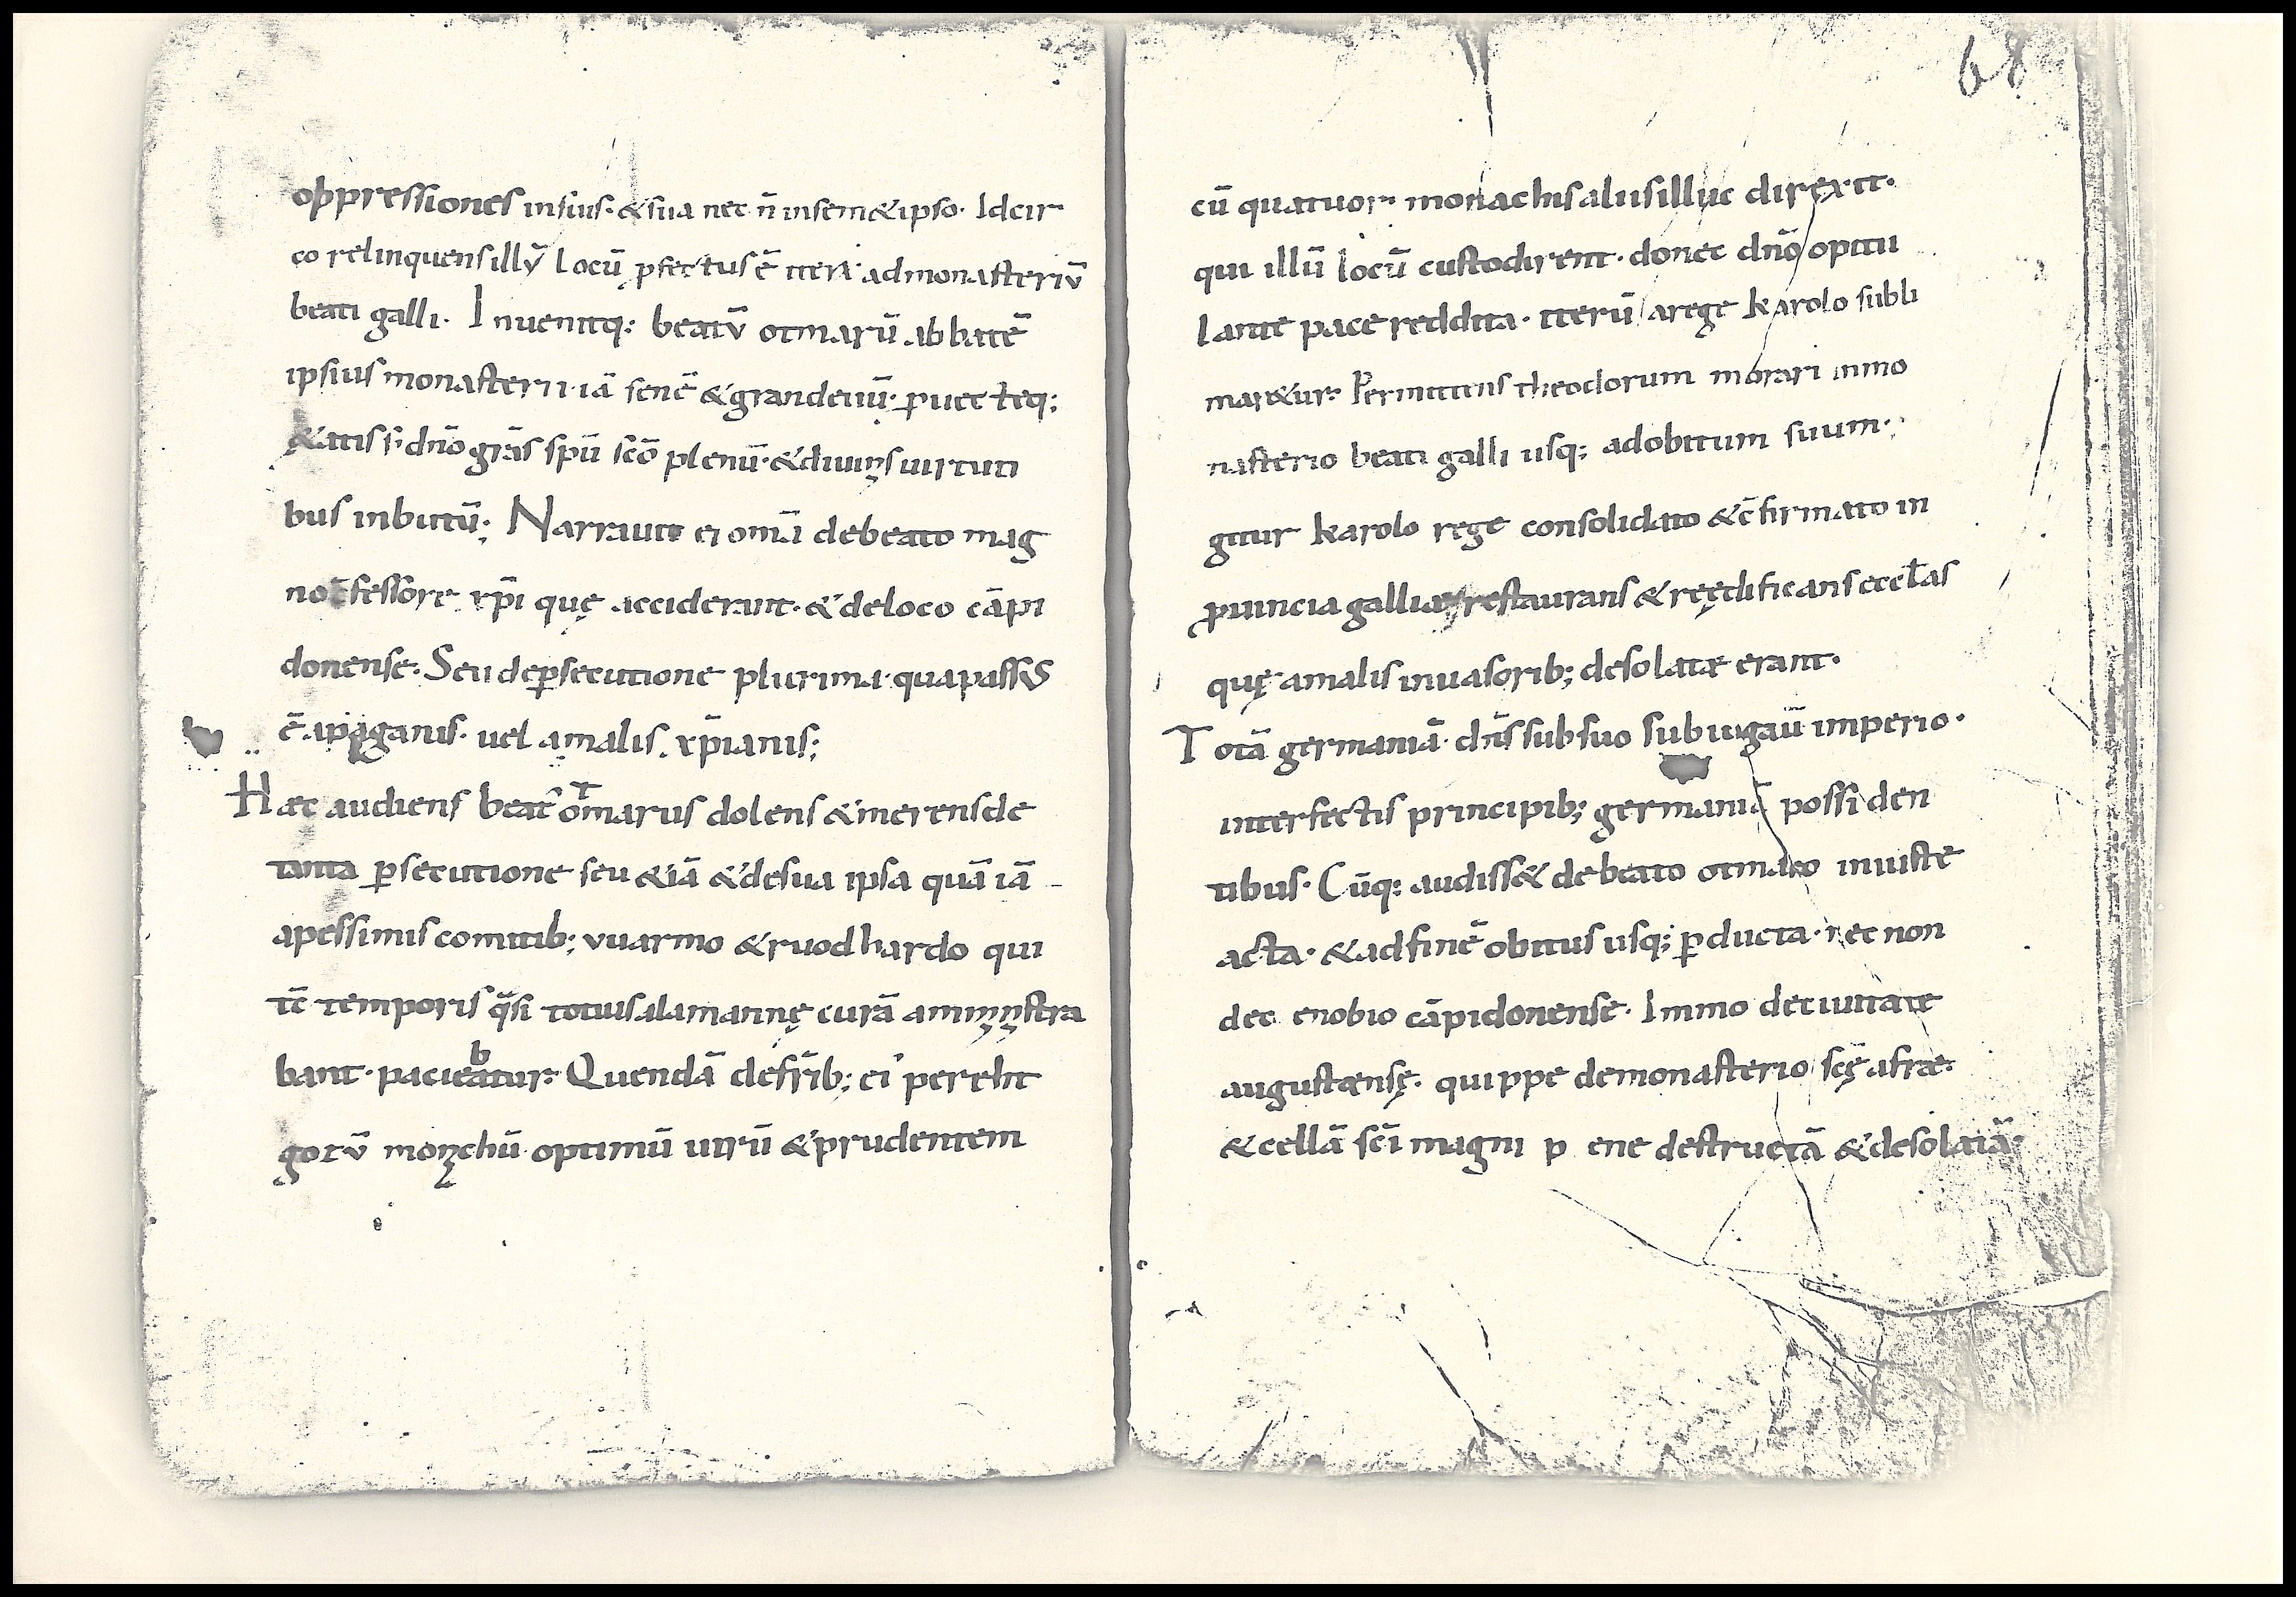 oppressiones insius· &sua nec n̄ insem&ipso· Idcir
co relinquens illū locū ꝓfectus ē iterū admonasteriū
beati galli· Inuenitq; beatū otmarū abbatē
ipsius monasterii· iā senē &grandeuū· ꝓuecteq;
&atis s; dn̄o grās sp̄u sc̄o plenū· &diuinis uirtuti
bus inbutū; Narrauit ei om̄ia debeato mag
no c̄fessore xp̄i quę acciderunt· &deloco cāpi
donense· Seu deꝑsecutione plurima· quapassus
ē apaganis· uel amalis xp̄ianis;
Haec audiens beat᾽ otmarus dolens &merensde
tanta ꝑsecutione seu &iā &desua ipsa quā iā
apessimis comitib; vuarino &ruodhardo qui
tc̄ temporis q̄si totius alamannę curā aministra
bant· paciebatur· Quendā defr̄ib; ei᾽ pereht
gotū monachū optimū uirū &prudentem
68
cū quatuor monachis aliis illuc direxit·
qui illū locū custodirent· donec dn̄o opitu
lante pace reddita· iterū arege karolo subli
mar&ur· Permittens theodorum morari inmo
nasterio beati galli usq; adobitum suum·
gitur karolo rege consolidato &c̄firmato in
ꝓuincia galliae restaurans &reędificans eccłas
quę amalis inuasorib; desolatae erant·
Totā germaniā· dn̄s sub suo subiugauī imperio·
interfectis principib; germaniā possiden
tibus· Cūq; audiss& debeato otmaro iniuste
acta· &adfinē obitus usq; ꝑducta· nec non
dec enobio cāpidonense· Immo deciuitate
augustensę· quippe demonasterio sc̄ę afrae·
&cellā sc̄i magni p ene destructā &desolatā·